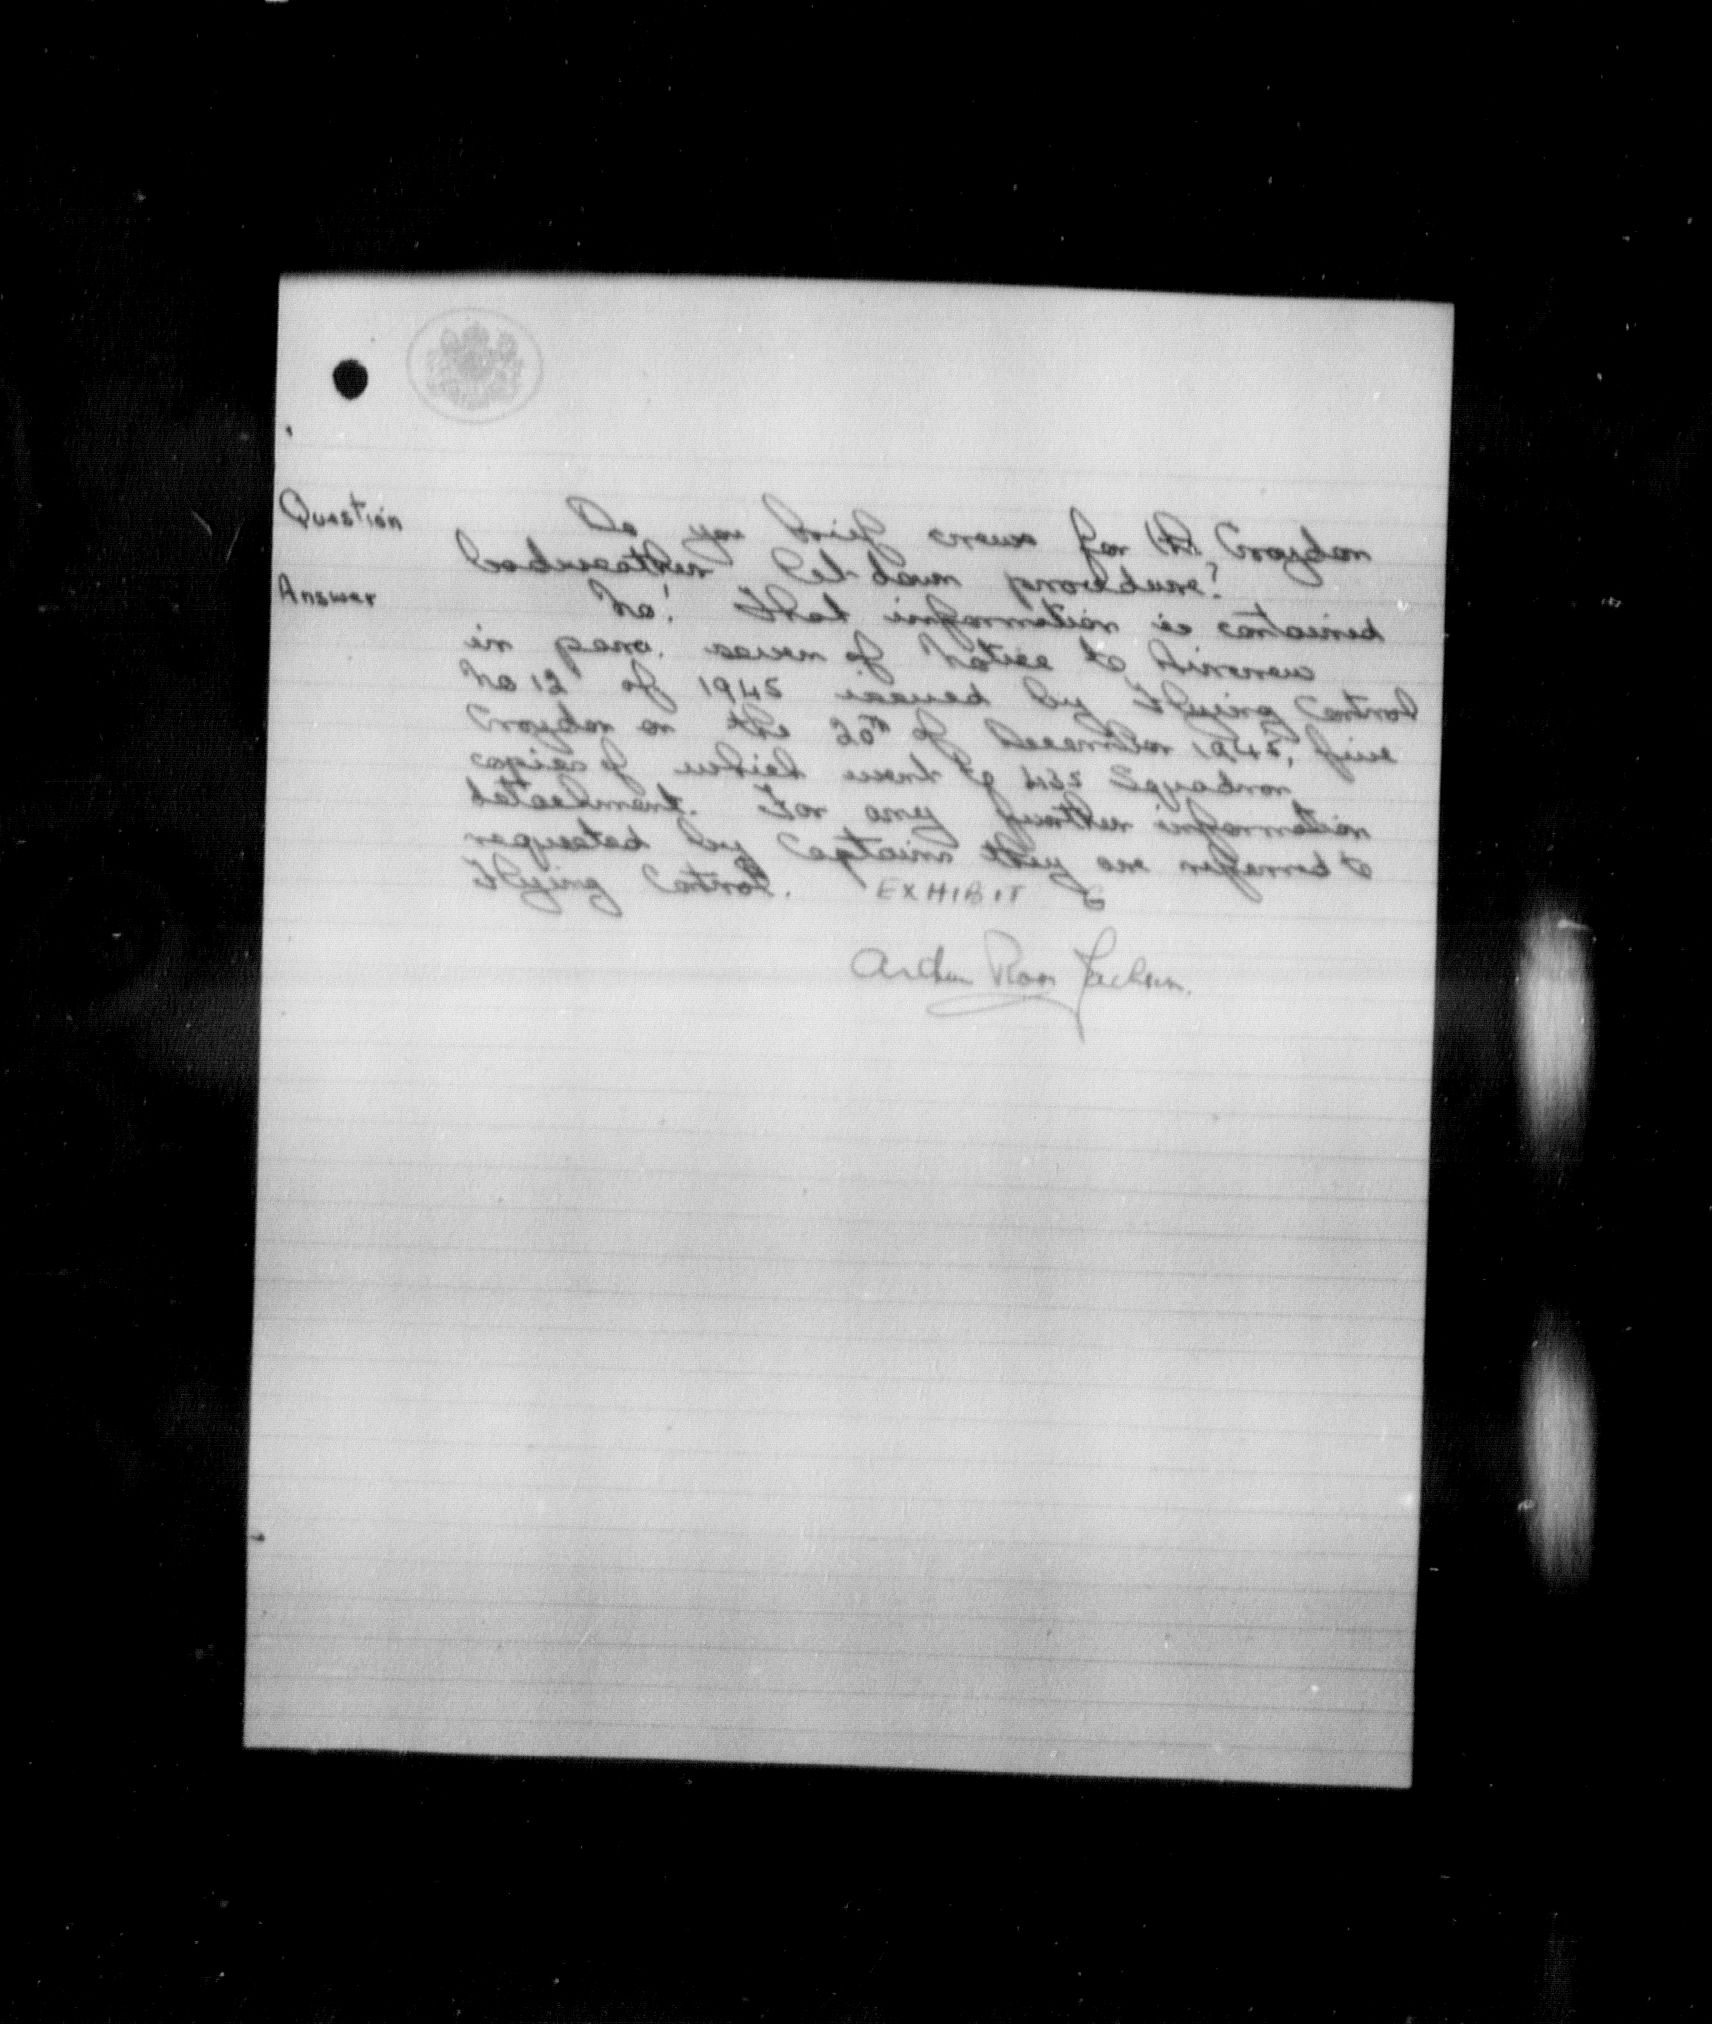 Question Do you brief crews for the Croydon
bad weather let down procedure?
Answer No! That information is contained
in para. seven of Notice to Airmen
No 12 of 1945 issued by Flying Control
Croydon on the 20th of December 1945, five
copies of which went to 435 Squadron
detachment. For any further information
requested by captains they are referred to
Flying Control. EXHIBIT G
Arthur Ross Jackson.